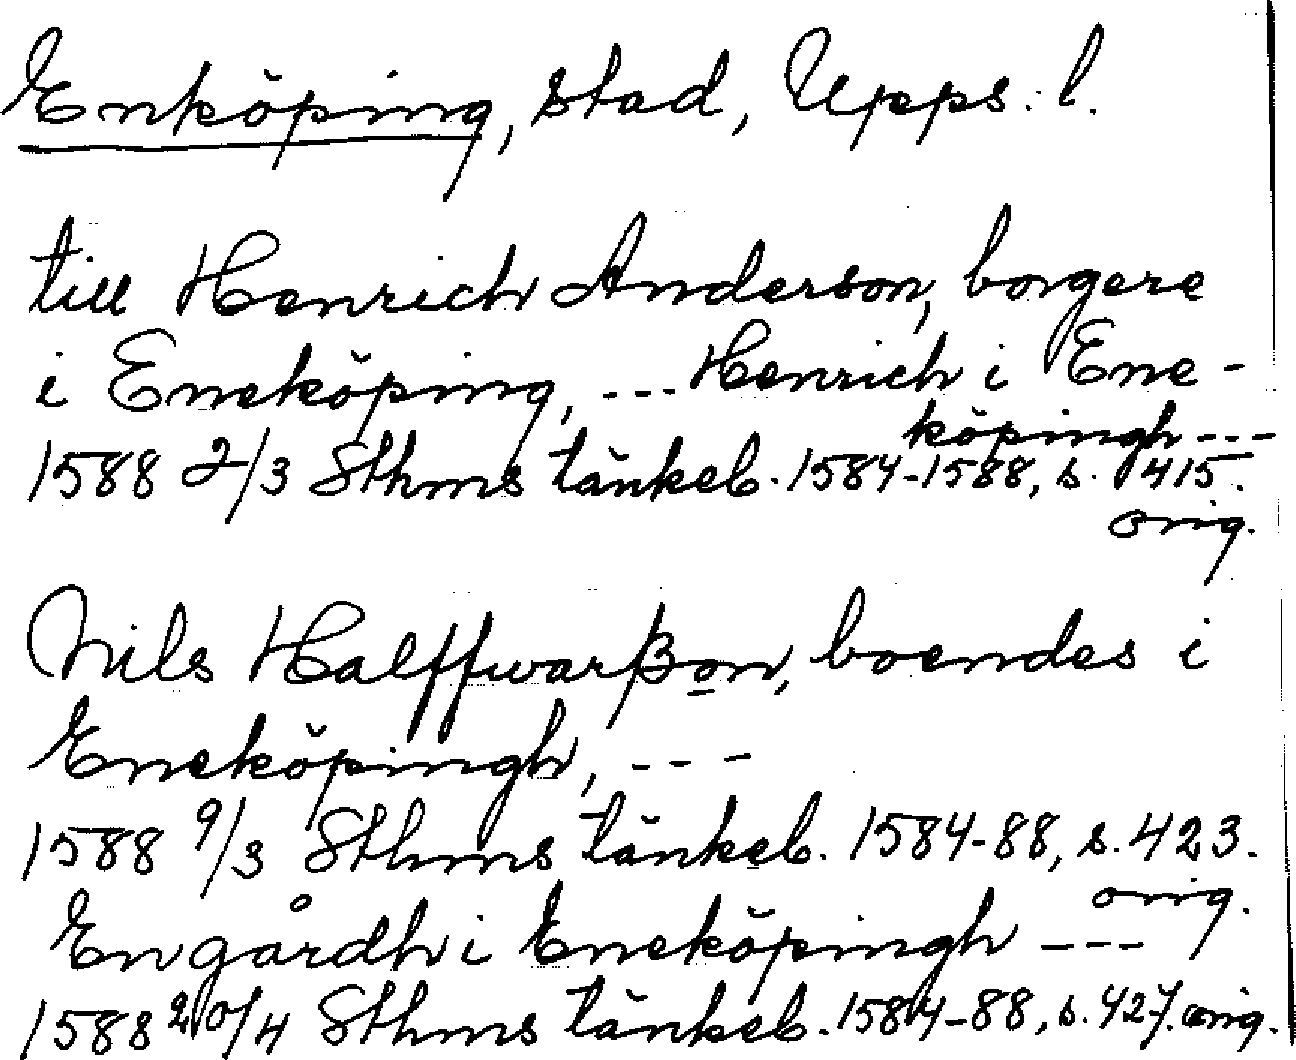 Enköping, stad, Upps. l.
till Henrich Anderson, borgere
i Eneköping, --- Henrich i Ene-
köpingh ---
1588 2/3 Sthms tänkeb. 1584-1588, s. 415.
orig.
Nils Halffwarßon, boendes i
Eneköpingh, ---
1588 9/3 Sthms tänkeb. 1584-88, s. 423.
orig.
En gårdh i Eneköpingh ---
1588 20/4 Sthms tänkeb. 1584-88, s. 427. orig.